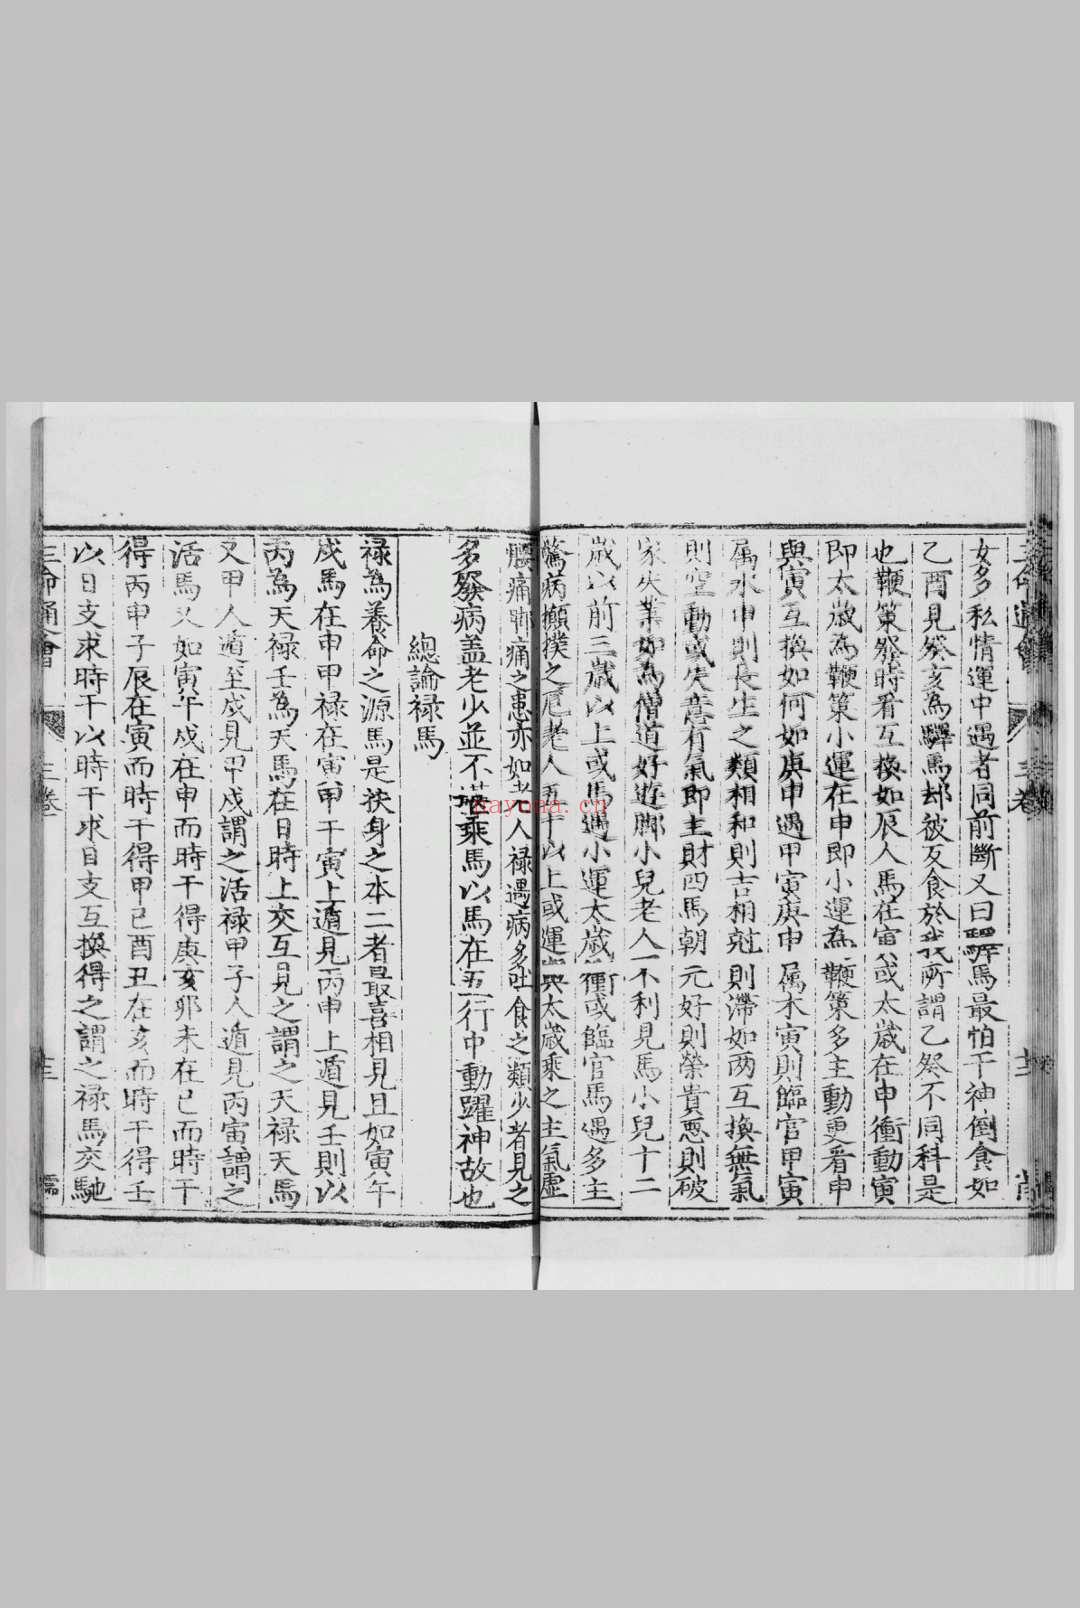 女多私情運中遇者同前斷又曰驛馬最怕干神倒食如
乙酉見癸亥為驛馬却被反食於我所謂乙癸不同科是
也鞭策祭時看互換如辰人馬在寅或太歲在申衝動寅
即太歲為鞭策小運在申即小運為鞭策多主動更看申
與寅互換如何如庚申遇甲寅庚申屬木寅則臨官甲寅
属水申則長生之類相和則吉相尅則滯如两互換無氣
則空動或失意有氣即主財四馬朝元好則榮貴惡則破
家失業如為僧道好遊脚小兒老人不利見馬小兒十二
歲以前三歲以上或馬遇小運太歲衝或臨官馬遇多主
驚病攧撲之厄老人五十以上或運與太歲乘之主氣虛
腰痛脚痛之患亦如老人禄遇病多吐食之類少者見之
多發病盖老少並不堪乘馬以馬在五行中動躍神故也
總論禄馬
禄為養命之源馬是扶身之本二者最喜相見且如寅午
戌馬在申甲禄在寅甲干寅上遁見丙申上遁見壬則以
丙為天禄壬為天馬在日時上交互見之謂之天禄天馬
又甲人遁至戌見甲戌謂之活禄甲子人遁見丙寅謂之
活馬又如寅午戌在申而時干得庚亥卯未在巳而時干
得丙申子辰在寅而時干得甲巳酉丑在亥而時干得壬
以日支求時干以時干求日支互換得之謂之禄馬交馳
三命通會
三卷
nayona.cn